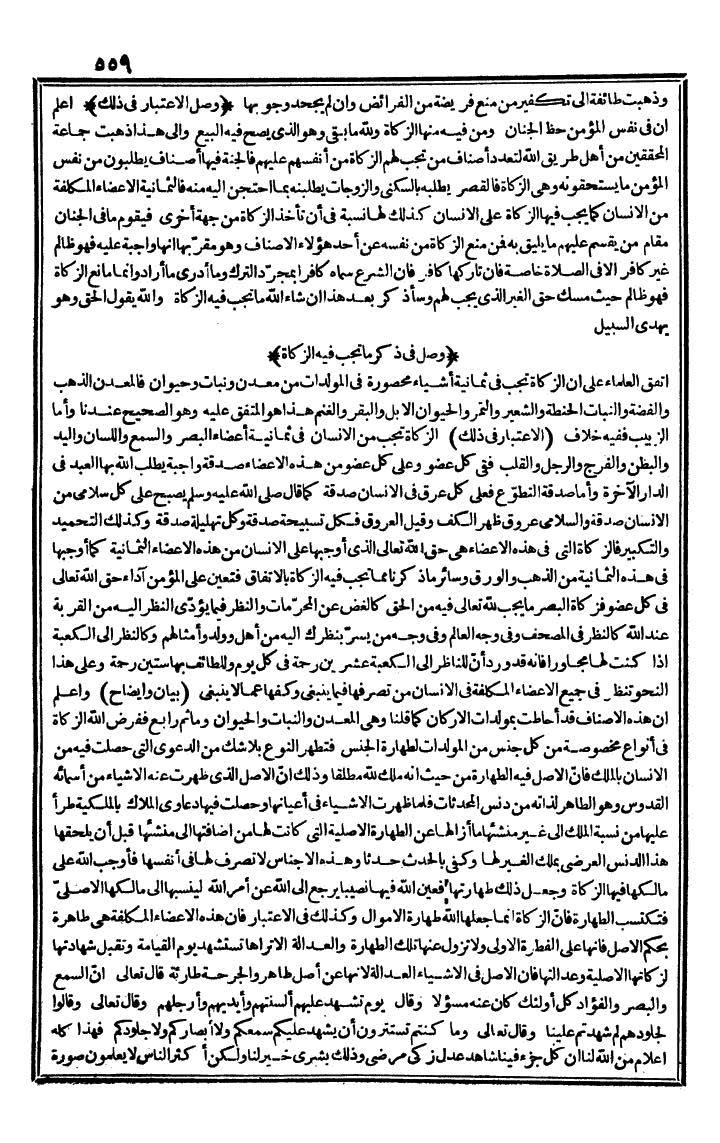 ٥٥٩
وذهبت طائفة الى تكفير من منع فريضة من الفرائض وان لم يجحد وجوبها ﴿وصل الاعتبار فى ذلك﴾ اعلم
ان فى نفس المؤمن حظ الجنان ومن فيه منها الزكاة ولله ما بقى وهو الذى يصح فيه البيع والى هذا ذهبت جماعة
المحققين من أهل طريق الله لتعدد أصناف من تجب لهم الزكاة من أنفسهم عليهم فالجنة فيها أصناف يطلبون من نفس
المؤمن ما يستحقونه وهى الزكاة فالقصر يطلبه بالسكنى والزوجات يطلبنه بما احتجن اليه منه فالثمانية الاعضاء المكلفة
من الانسان كما يجب فيها الزكاة على الانسان كذلك لها نسبة فى أن تأخذ الزكاة من جهة أخرى فيقوم ما فى الجنان
مقام من يقسم عليهم ما يليق به فمن منع الزكاة من نفسه عن أحد هؤلاء الاصناف وهو مقرّ بها انها واجبة عليه فهو ظالم
غير كافر الا فى الصلاة خاصة فان تاركها كافر فان الشرع سماه كافرا بمجرّد الترك وما أدرى ما أراد وانما مانع الزكاة
فهو ظالم حيث مسك حق الغير الذى يجب لهم وسأذكر بعد هذا ان شاء الله ما تجب فيه الزكاة والله يقول الحق وهو
يهدى السبيل
﴿وصل فى ذكر ما تجب فيه الزكاة﴾
اتفق العلماء على ان الزكاة تجب فى ثمانية أشياء محصورة فى المولدات من معدن ونبات وحيوان فالمعدن الذهب
والفضة والنبات الحنطة والشعير والتمر والحيوان الابل والبقر والغنم هذا هو المتفق عليه وهو الصحيح عندنا وأما
الزبيب ففيه خلاف (الاعتبار فى ذلك) الزكاة تجب من الانسان فى ثمانية أعضاء البصر والسمع واللسان واليد
والبطن والفرج والرجل والقلب ففى كل عضو وعلى كل عضو من هذه الاعضاء صدقة واجبة يطلب الله بها العبد فى
الدار الآخرة وأما صدقة التطوّع فعلى كل عرق فى الانسان صدقة كما قال صلى الله عليه وسلم يصبح على كل سلامى من
الانسان صدقة والسلامى عروق ظهر الكف وقيل العروق فكل تسبيحة صدقة وكل تهليلة صدقة وكذلك التحميد
والتكبير فالزكاة التى فى هذه الاعضاء هى حق الله تعالى الذى أوجبها على الانسان من هذه الاعضاء الثمانية كما أوجبها
فى هذه الثمانية من الذهب والورق وسائر ما ذكرنا مما تجب فيه الزكاة بالاتفاق فتعين على المؤمن آداء حق الله تعالى
فى كل عضو فزكاة البصر ما يجب لله تعالى فيه من الحق كالغض عن المحرّمات والنظر فيما يؤدّى النظر اليه من القربة
عند الله كالنظر فى المصحف وفى وجه العالم وفى وجه من يسرّ بنظرك اليه من أهل وولد وأمثالهم وكالنظر الى الكعبة
اذا كنت لها مجاورا فانه قد ورد أنّ للناظر الى الكعبة عشرين رحمة فى كل يوم وللطائف بها ستين رحمة وعلى هذا
النحو تنظر فى جميع الاعضاء المكلفة فى الانسان من تصرفها فيما ينبغى وكفها عما لا ينبغى (بيان وايضاح) واعلم
ان هذه الاصناف قد أحاطت بمولدات الاركان كما قلنا وهى المعدن والنبات والحيوان وما ثم رابع ففرض الله الزكاة
فى أنواع مخصوصة من كل جنس من المولدات لطهارة الجنس فتطهر النوع بلا شك من الدعوى التى حصلت فيه من
الانسان بالملك فانّ الاصل فيه الطهارة من حيث انه ملك لله مطلقا وذلك انّ الاصل الذى ظهرت عنه الاشياء من أسمائه
القدوس وهو الطاهر لذاته من دنس المحدثات فلما ظهرت الاشياء فى أعيانها وحصلت فيها دعاوى الملاك بالملكية طرأ
عليها من نسبة الملك الى غير منشئها ما أزالها عن الطهارة الاصلية التى كانت لها من اضافتها الى منشئها قبل أن يلحقها
هذا الدنس العرضى بملك الغير لها وكفى بالحدث حدثا وهذه الاجناس لا تصرف لها فى أنفسها فأوجب الله على
مالكها فيها الزكاة وجعل ذلك طهارتها فعين الله فيها نصيبا يرجع الى الله عن أمر الله لينسبها الى مالكها الاصلىّ
فتكتسب الطهارة فانّ الزكاة انما جعلها الله طهارة الاموال وكذلك فى الاعتبار فان هذه الاعضاء المكلفة هى طاهرة
بحكم الاصل فانها على الفطرة الاولى ولا تزول عنها تلك الطهارة والعدالة الا تراها تستشهد يوم القيامة وتقبل شهادتها
لزكاتها الاصلية وعدالتها فان الاصل فى الاشياء العدالة لانها عن أصل طاهر والجرحة طارئة قال تعالى انّ السمع
والبصر والفؤاد كل أولئك كان عنه مسؤلا وقال يوم تشهد عليهم ألسنتهم وأيديهم وأرجلهم وقال تعالى وقالوا
لجلودهم لم شهدتم علينا وقال تعالى وما كنتم تستترون أن يشهد عليكم سمعكم ولا أبصاركم ولا جلودكم فهذا كله
اعلام من الله لنا ان كل جزء فينا شاهد عدل زكى مرضى وذلك بشرى خير لنا ولكن أكثر الناس لا يعلمون صورة